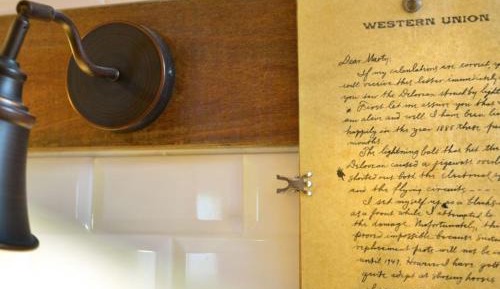 WESTERN UNION
Dear Marty,
If my calculations are correct, y
will receive this letter immediately
you saw the DeLorean struck by light
First let me assure you that
am alive and well. I have been liv
happily in the year 1885 these pas
months.
The lightning bolt that hit the
DeLorean caused a gigawatt overlo
shorted out both the electrical
and the flying circuits
I set myself up as a blacks
as a front while I attempted to
the damage. Unfortunately, this
proved impossible because suita
replacement parts will not be in
until 1947. However, I have gott
quite adept at shoeing horses